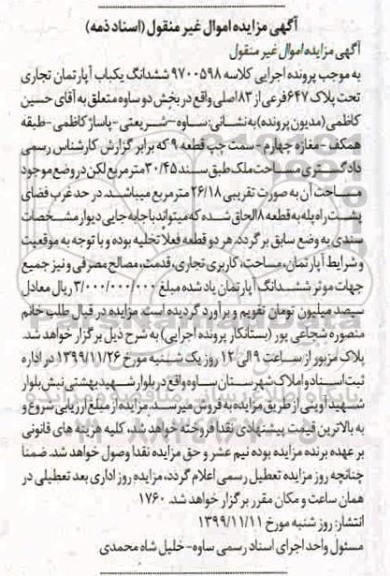 آگهی مزایده اموال غیر منقول (اسناد ذمه)
آگهی مزایده اموال غیر منقول
به موجب پرونده اجرایی کلاسه ۹۷۰۰۵۹۸ ششدانگ یکباب آپارتمان تجاری
تحت پلاک ۶۴۷ فرعی از ۸۳ اصلی واقع در بخش دو ساوه متعلق به آقای حسین
کاظمی (مدیون پرونده) به نشانی: ساوه – شریعتی – پاساژ کاظمی – طبقه
همکف – مغازه چهارم – سمت چپ قطعه ۹ که برابر گزارش کارشناس رسمی
دادگستری مساحت ملک طبق سند ۳۰/۴۵ متر مربع لکن در وضع موجود
مساحت آن به صورت تقریبی ۲۶/۱۸ متر مربع میباشد. در حد غرب فضای
پشت راه پله به قطعه ۸ الحاق شده که میتواند با جابه جایی دیوار مشخصات
سندی به وضع سابق برگردد. هر دو قطعه فعلا تخلیه بوده و با توجه به موقعیت
و شرایط آپارتمان، مساحت، کاربری تجاری، قدمت، مصالح مصرفی و نیز جمیع
جهات موثر ششدانگ آپارتمان یاد شده مبلغ ۳/۰۰۰/۰۰۰/۰۰۰ ریال معادل
سیصد میلیون تومان تقویم و برآورد گردیده است. مزایده در قبال طلب خانم
منصوره شجاعی پور (بستانکار پرونده اجرایی) به شرح ذیل برگزار خواهد شد.
پلاک مزبور از ساعت ۹ الی ۱۲ روز یک شنبه مورخ ۱۳۹۹/۱۱/۲۶ در اداره
ثبت اسناد و املاک شهرستان ساوه واقع در بلوار شهید بهشتی نبش بلوار
شهید آوینی از طریق مزایده به فروش میرسد. مزایده از مبلغ ارزیابی شروع و
به بالاترین قیمت پیشنهادی نقدا فروخته خواهد شد، کلیه هزینه های قانونی
بر عهده برنده مزایده بوده نیم عشر و حق مزایده نقدا وصول خواهد شد. ضمنا
چنانچه روز مزایده تعطیل رسمی اعلام گردد، مزایده روز اداری بعد تعطیلی در
همان ساعت و مکان مقرر برگزار خواهد شد. ۱۷۶۰
انتشار: روز شنبه مورخ ۱۳۹۹/۱۱/۱۱
مسئول واحد اجرای اسناد رسمی ساوه – خلیل شاه محمدی